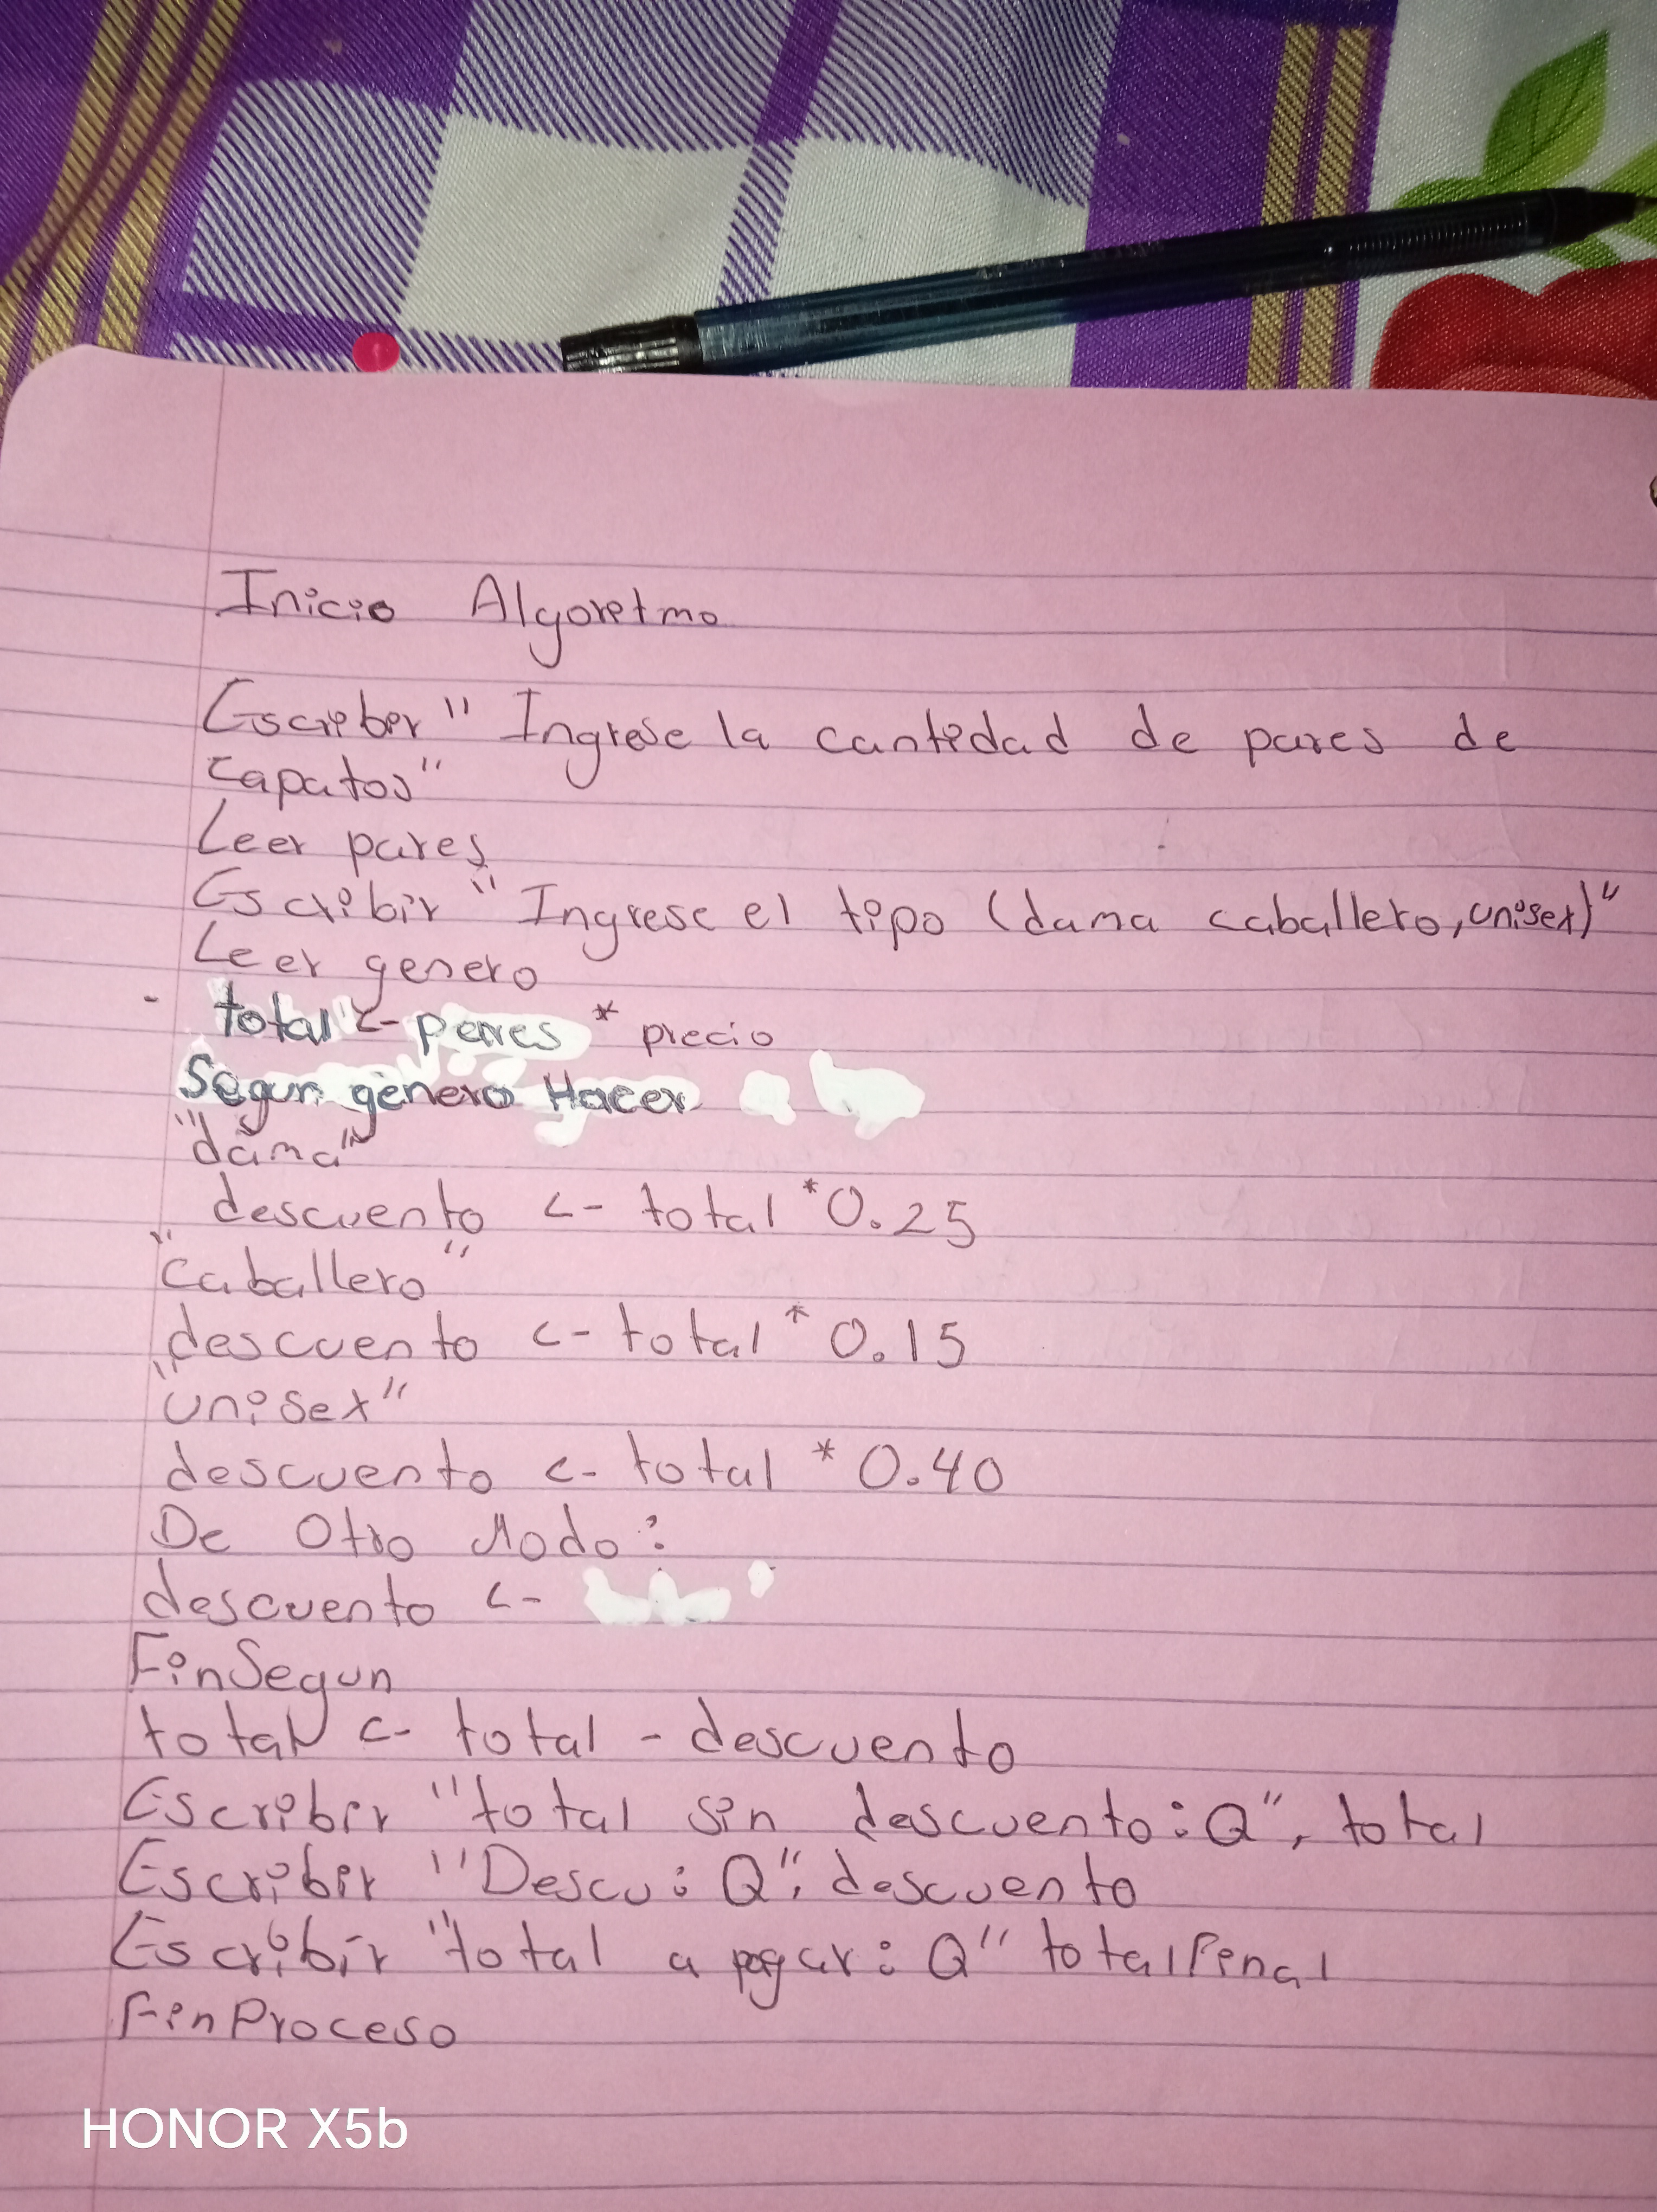 Inicio Algoritmo
Escribir " Ingrese la cantidad de pares de
zapatos"
Leer pares
Escribir "Ingrese el tipo (dama caballero, unisex)"
Leer genero
- total <- pares * precio
Segun genero Hacer
"dama"
descuento <- total * 0.25
"caballero"
descuento <- total * 0.15
"unisex"
descuento <- total * 0.40
De Otro Modo:
descuento <-
FinSegun
total <- total - descuento
Escribir "total sin descuento: Q", total
Escribir "Descu: Q", descuento
Escribir "total a pagar: Q" totalfinal
FinProceso
HONOR X5b